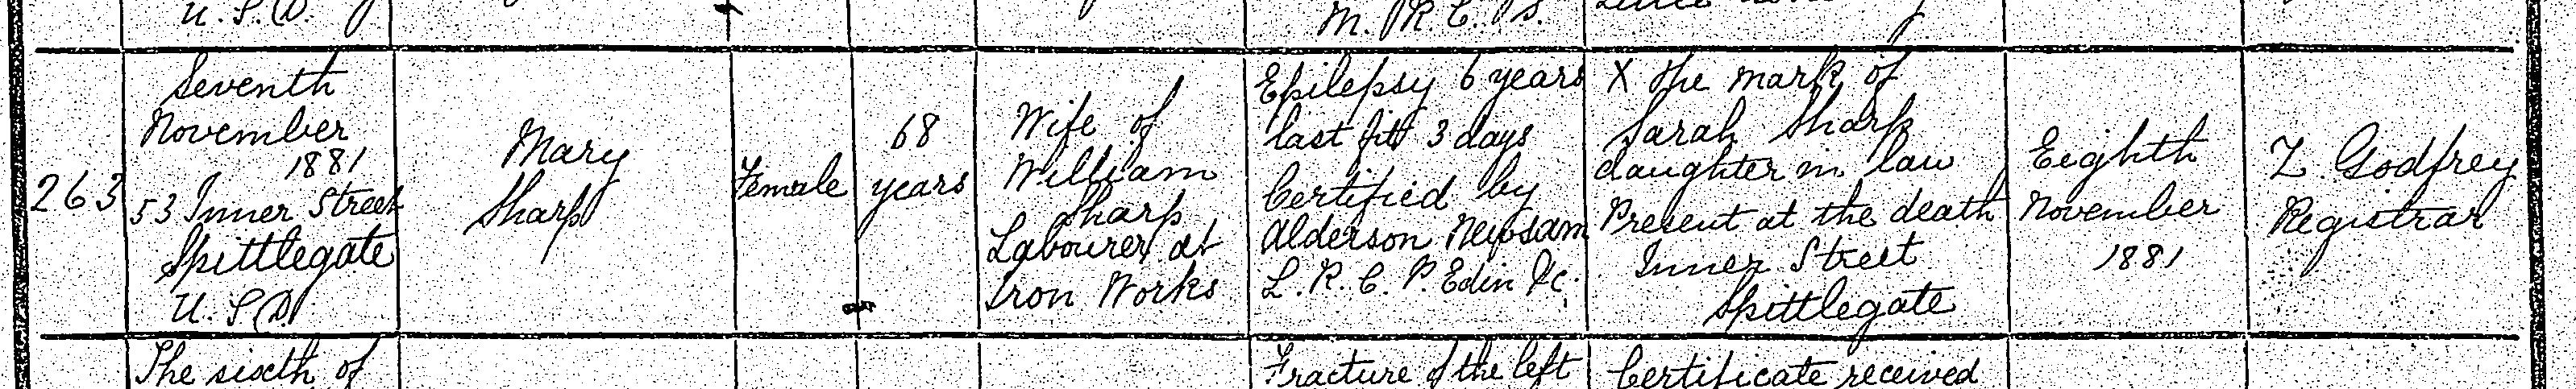 U.S.D.
M.R.C.S.
263
Seventh
November
1881
53 Inner Street
Spittlegate
U.S.D.
Mary
Sharp
Female
68
years
Wife of
William
Sharp
Labourer at
Iron Works
Epilepsy 6 years
last fit 3 days
Certified by
Alderson Newsam
L.R.C.P. Edin &c.
X The mark of
Sarah Sharp
daughter in law
Present at the death
Inner Street
Spittlegate
Eighth
November
1881
Z. Godfrey
Registrar
The sixth of
Fracture of the left
Certificate received